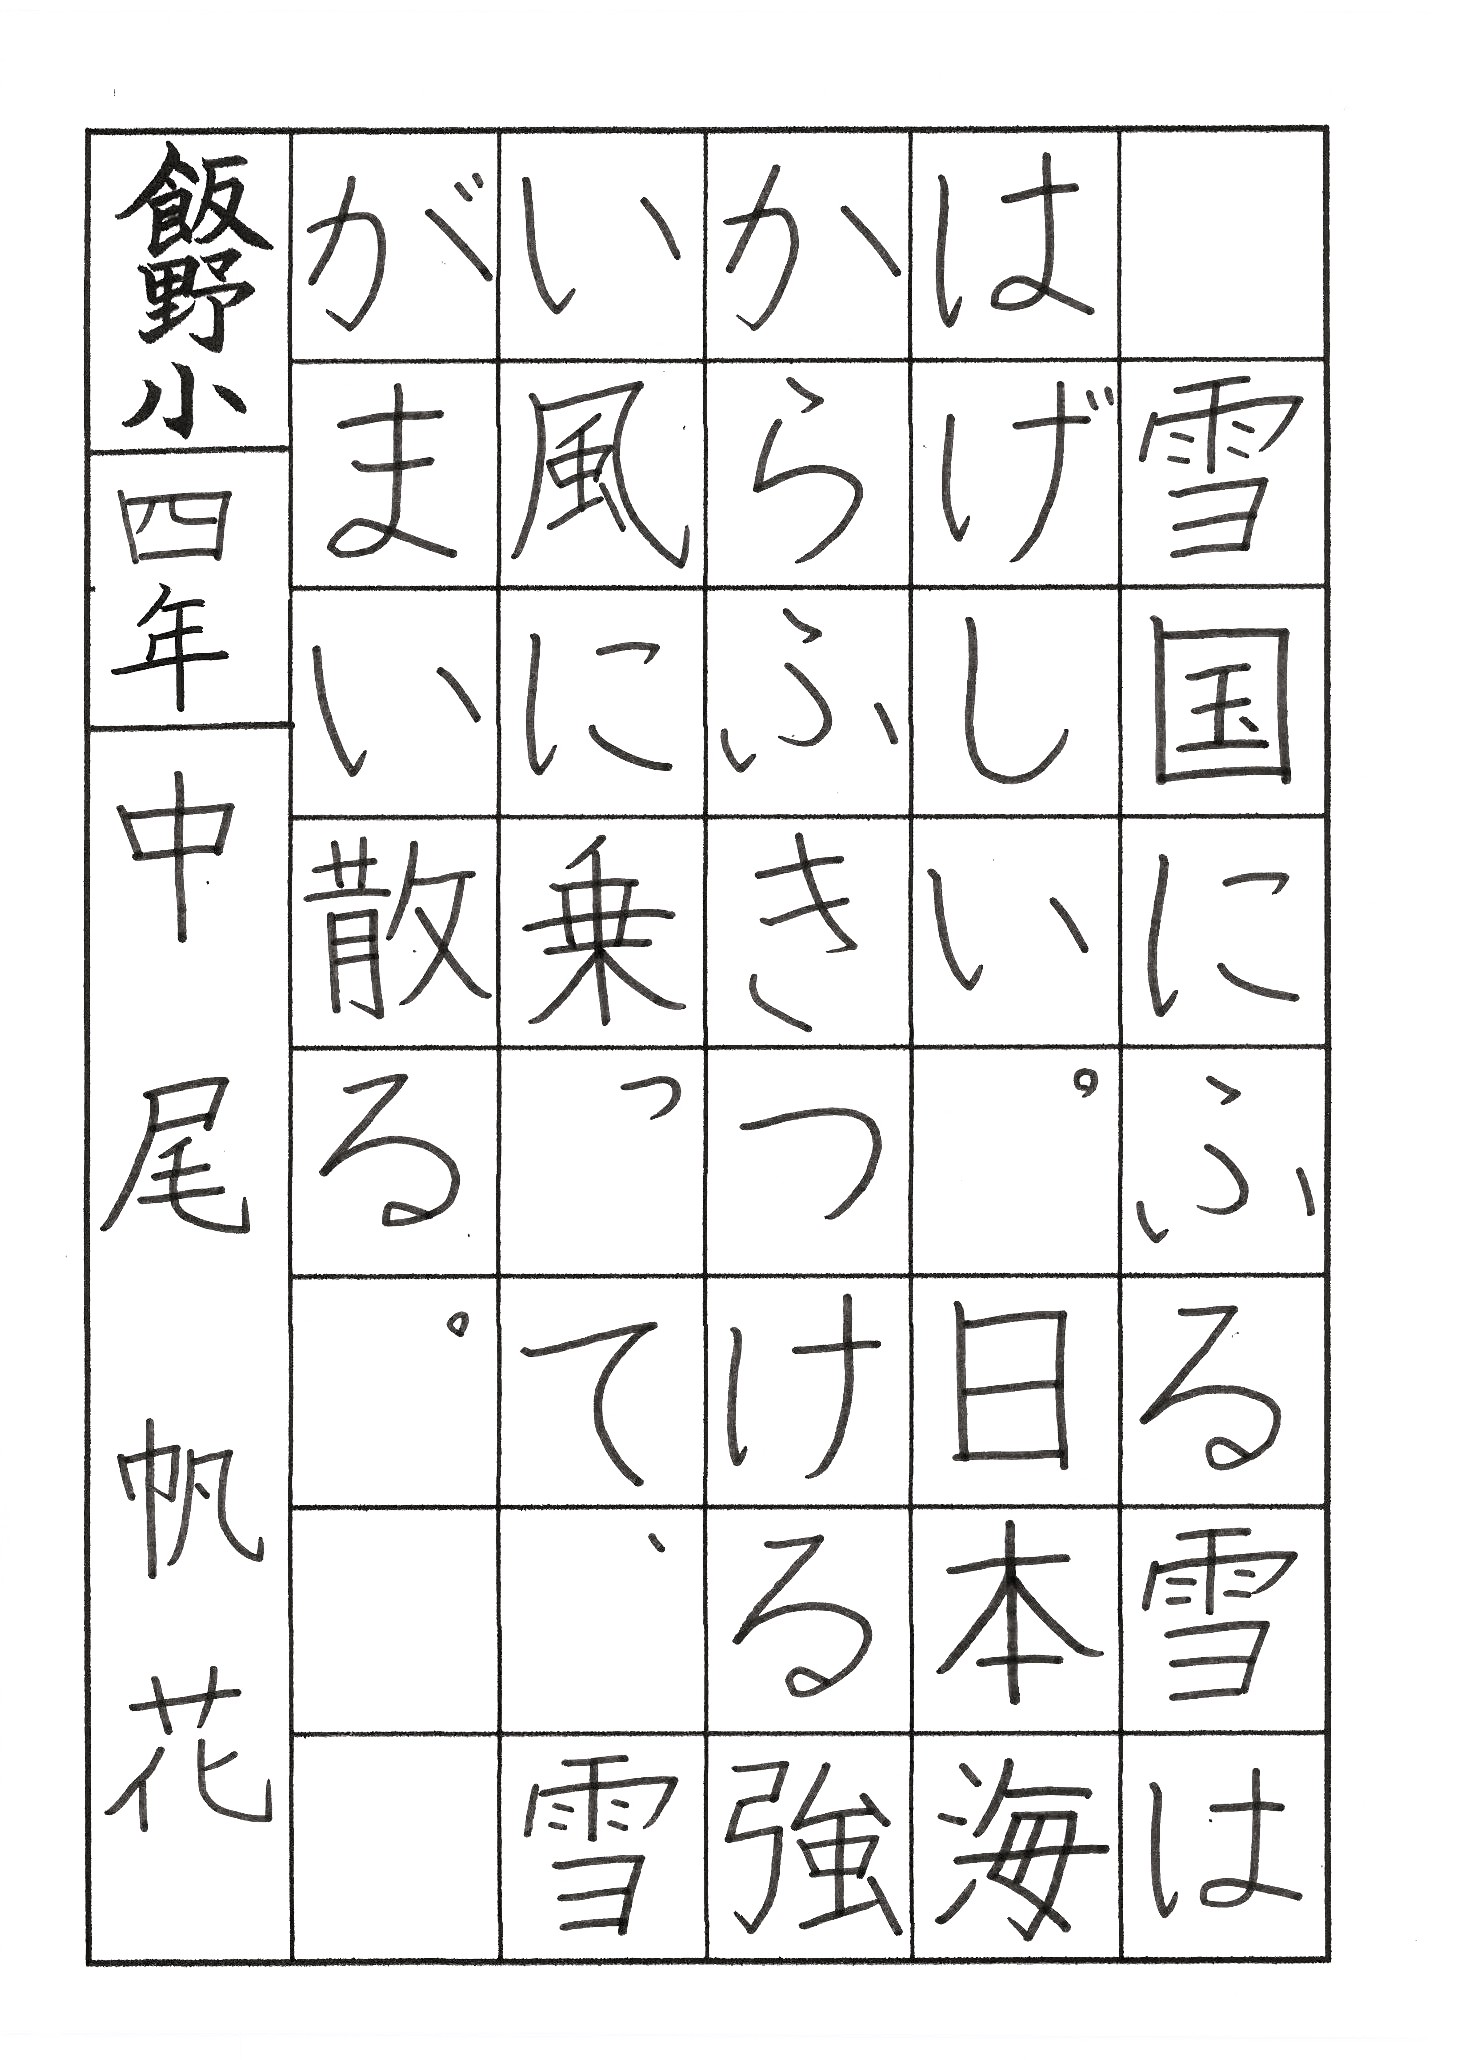 雪国にふる雪は
はげしい。日本海
からふきつける強
い風に乗って、雪
がまい散る。
飯野小四年中尾帆花